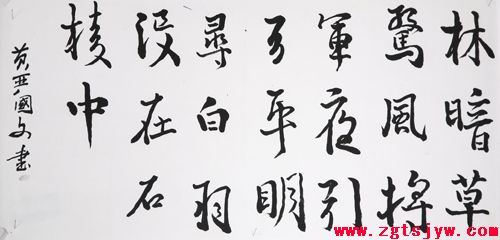 林暗草
驚風將
軍夜引
弓平明
尋白羽
没在石
棱中
www.zgtsjyw.com